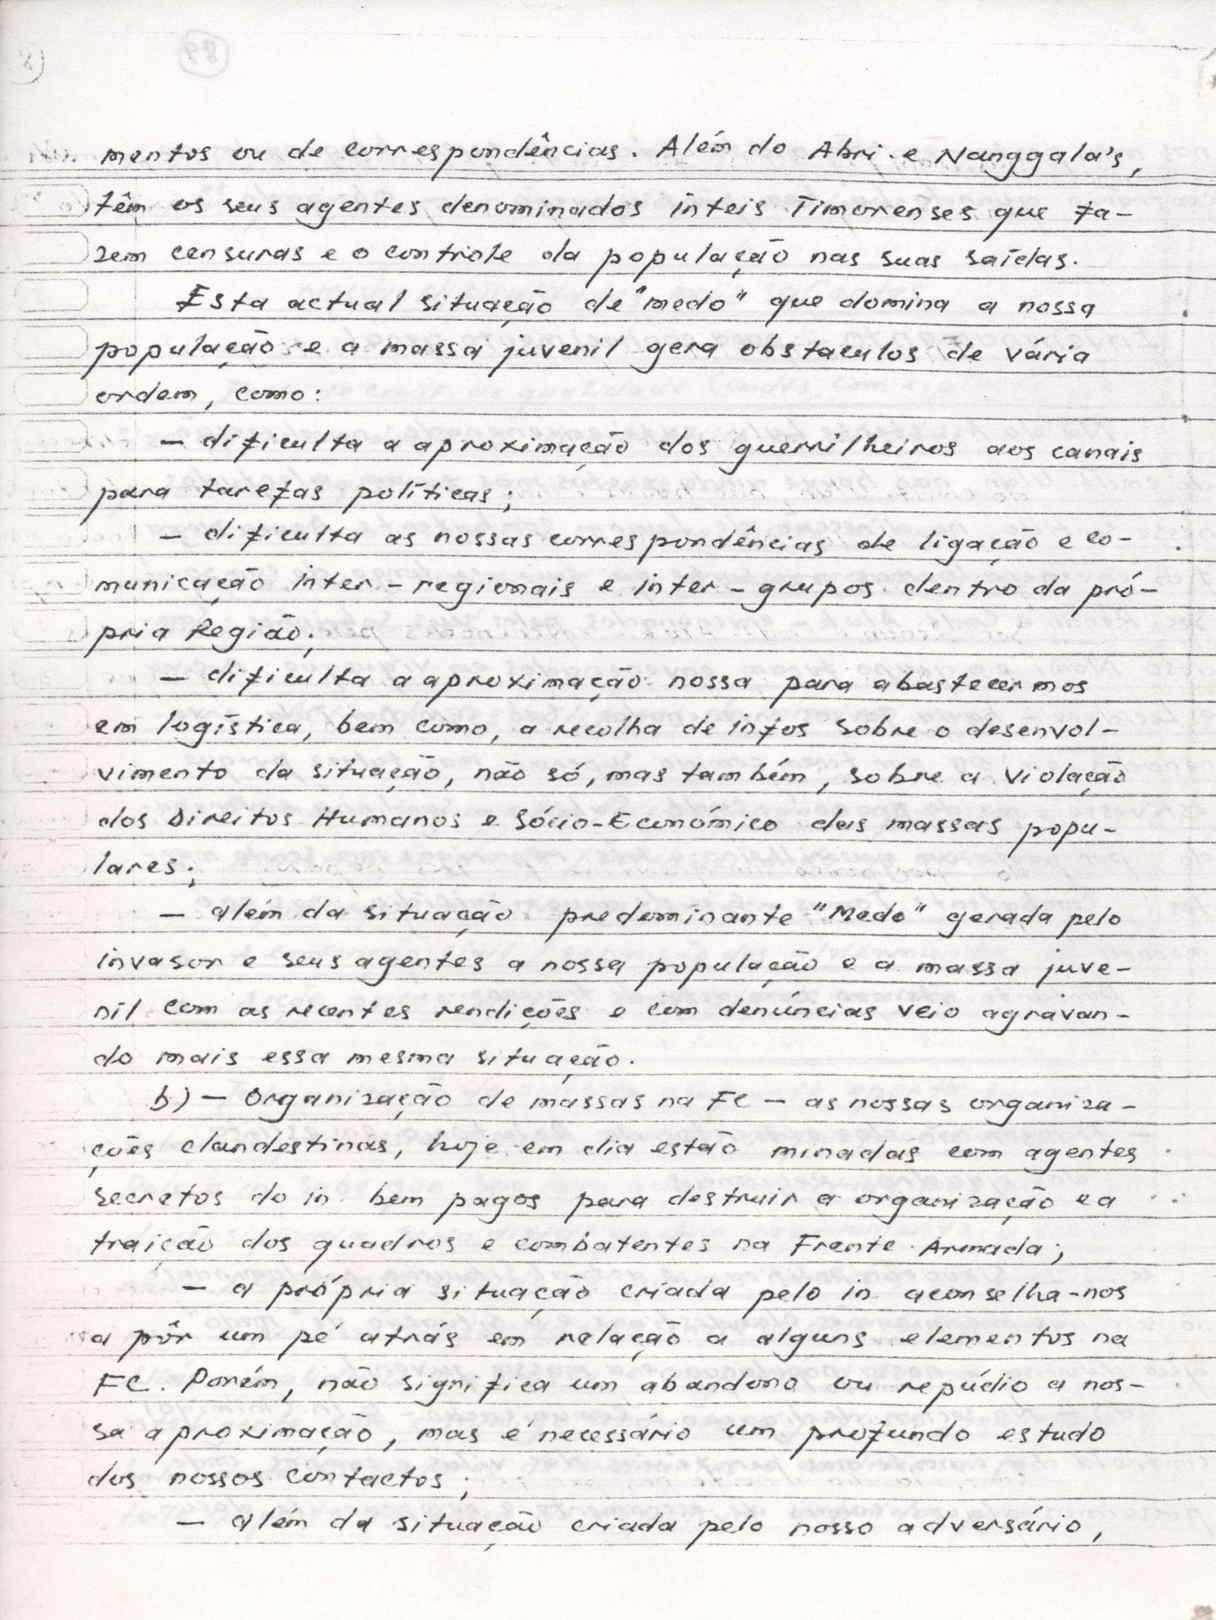 mentos ou de correspondências. Além do Abri e Nanggala's,
têm os seus agentes denominados inteis Timorenses que fa-
zem censuras e o controle da população nas suas saídas.
Esta actual situação de "medo" que domina a nossa
população e a massa juvenil gera obstaculos de vária
ordem, como:
— dificulta a aproximação dos guerrilheiros aos canais
para tarefas políticas;
— dificulta as nossas correspondências de ligação e co-
municação inter-regionais e inter-grupos dentro da pró-
pria Região;
— dificulta a aproximação nossa para abastecermos
em logística, bem como, a recolha de infos sobre o desenvol-
vimento da situação, não só, mas também, sobre a violação
dos Direitos Humanos e Sócio-Económico das massas popu-
lares;
— além da situação predominante "Medo" gerada pelo
invasor e seus agentes a nossa população e a massa juve-
nil com as recentes rendições e com denúncias veio agravan-
do mais essa mesma situação.
b) — Organização de massas na FC — as nossas organiza-
ções clandestinas, hoje em dia estão minadas com agentes
secretos do in bem pagos para destruir a organização e a
traição dos quadros e combatentes na Frente Armada;
— a própria situação criada pelo in aconselha-nos
a pôr um pé atrás em relação a alguns elementos na
FC. Porém, não significa um abandono ou repúdio a nos-
sa aproximação, mas é necessário um profundo estudo
dos nossos contactos;
— além da situação criada pelo nosso adversário,